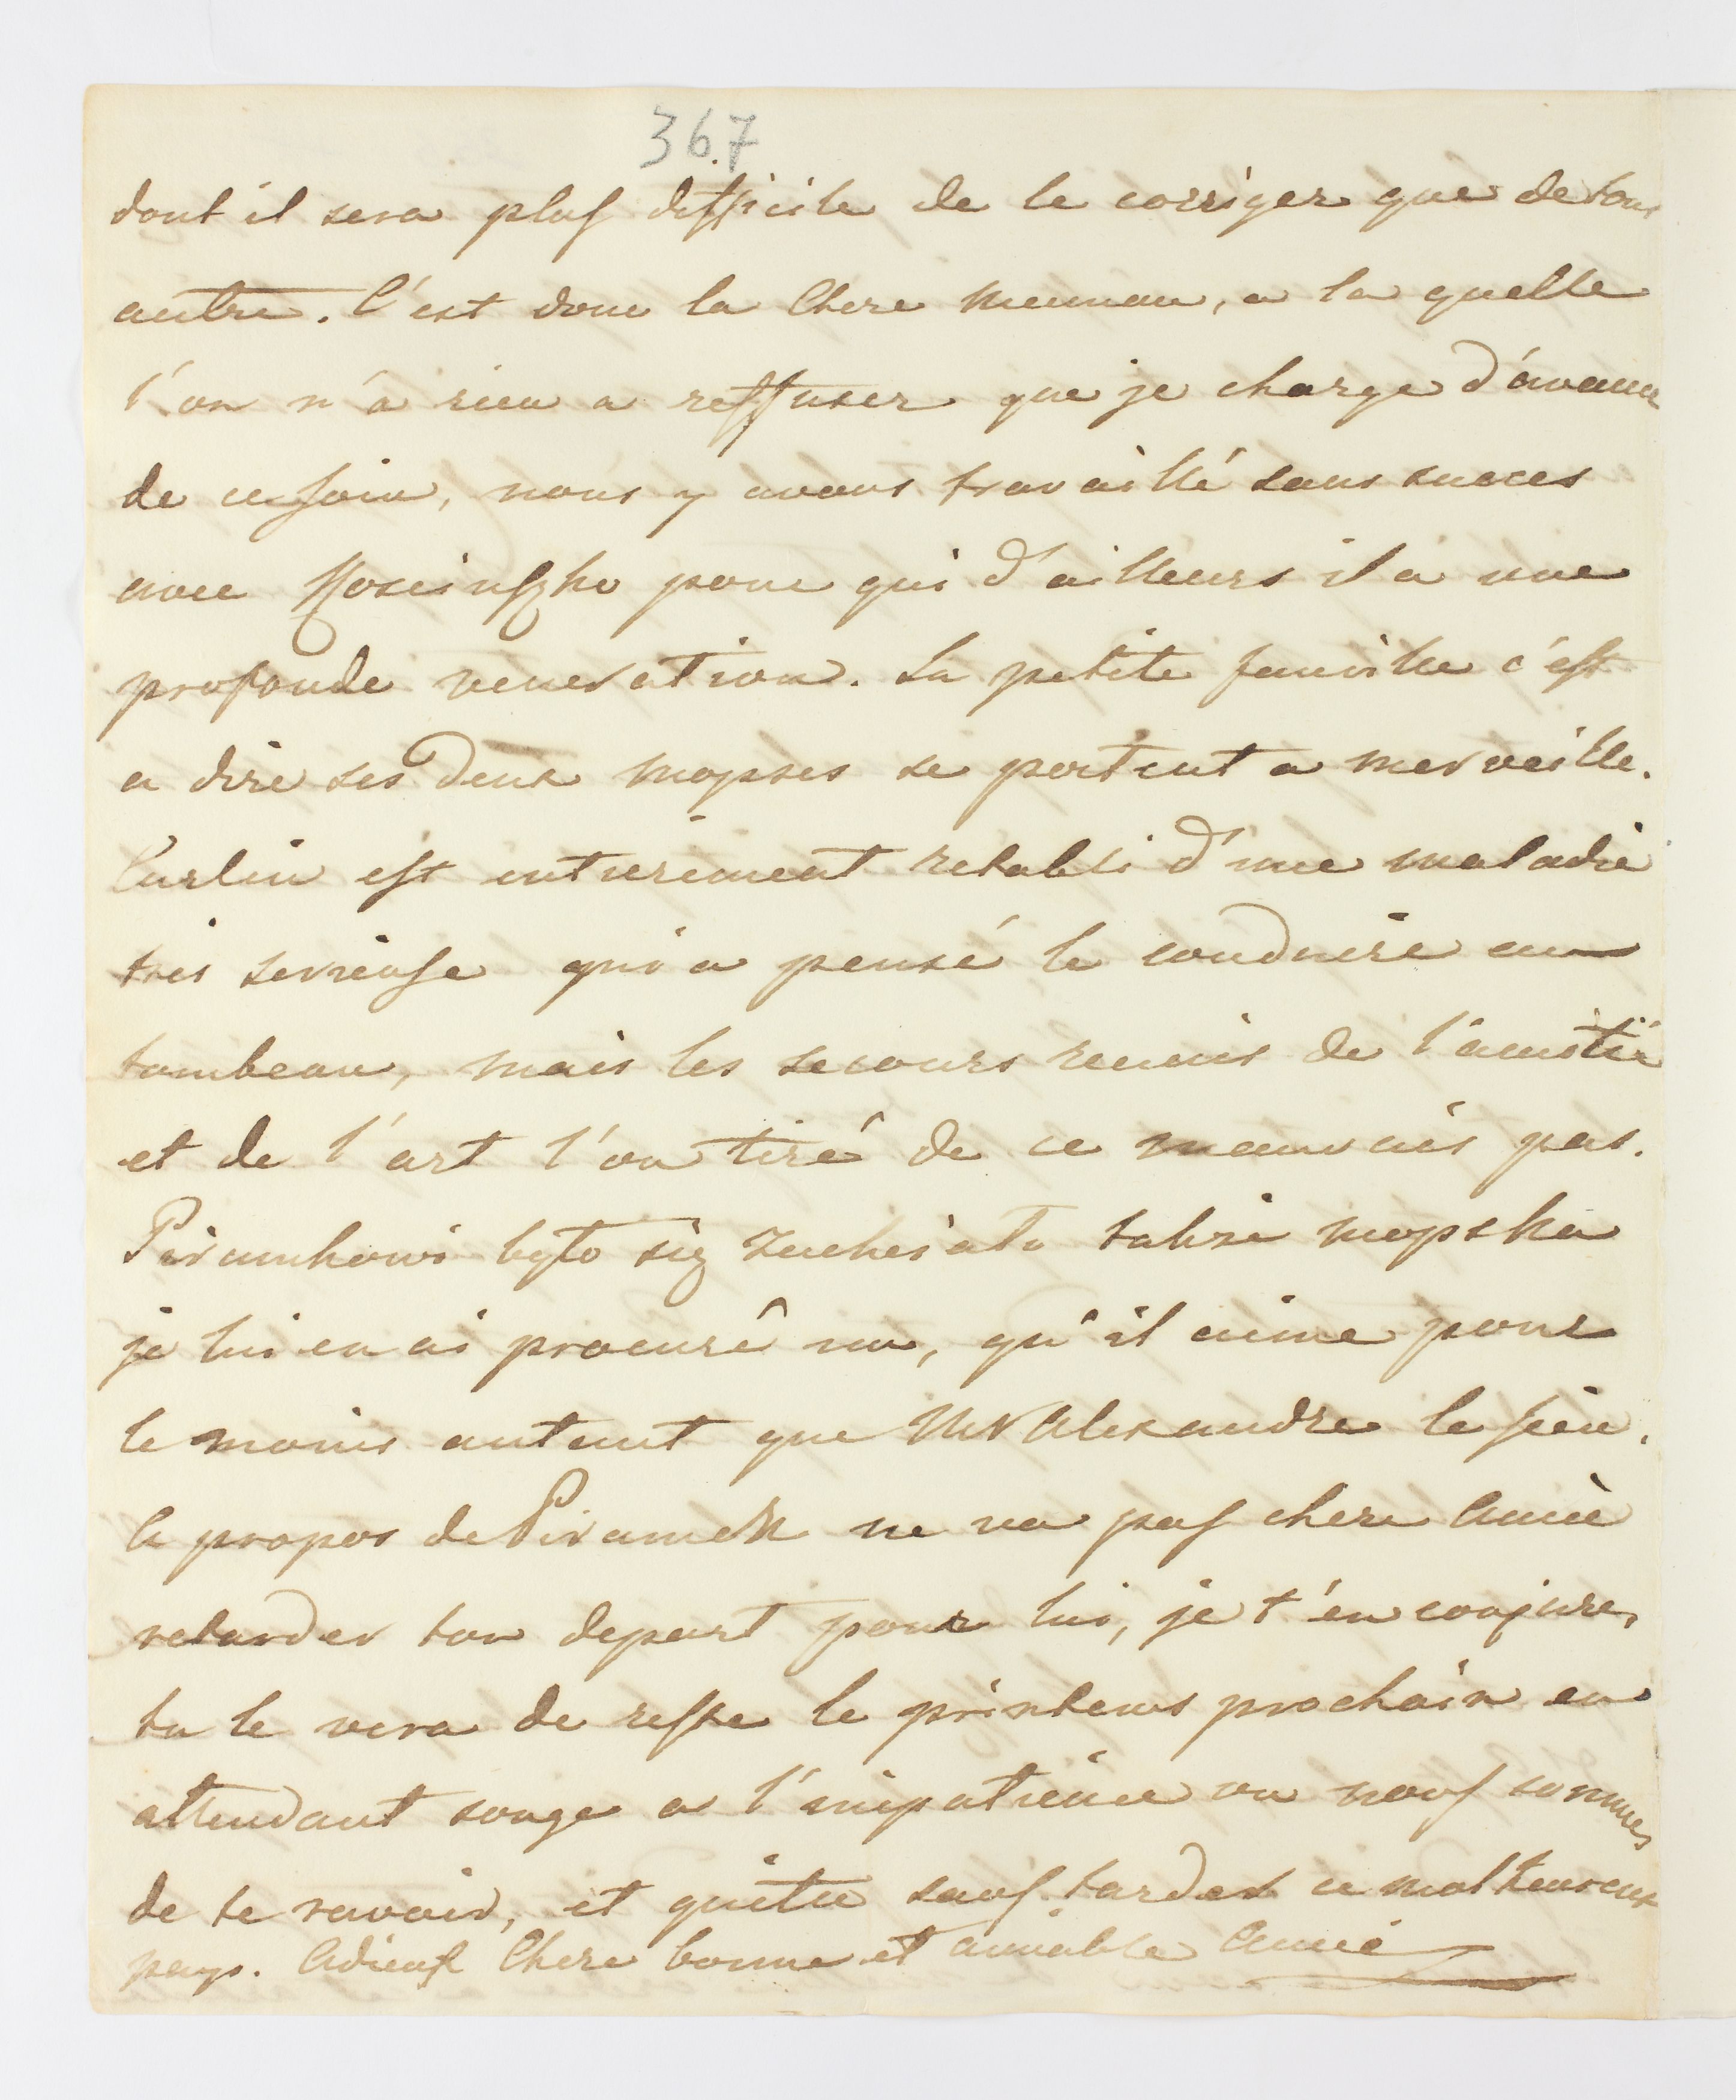 367
dont il sera plus difficile de le corriger que de tout
autre. C'est donc la Chere Meuman, a la quelle
l'on n'a rien a reffuser que je charge d'avance
de ce soin, nous y avons travaillé sans succes
avec Kosciuszko pour qui d'ailleurs il a une
profonde veneration. La petite famille c'est
a dire ses deux mopses se portent a merveille.
Carlin est entierement retabli d'une maladie
tres serieuse qui a pensé le conduire au
tombeau, mais les secours reunis de l'amitié
et de l'art l'on tiré de ce mauvais pas.
Piramkowi było się zachciało takze mopska
je lui en ai procuré un, qu'il aime pour
le moins autant que Mr Alexandre le sien.
A propos de Piramek ne va pas chere Amie
retarder ton depart pour lui, je t'en conjure,
tu le vera de reste le printems prochain en
attendant songe a l'impatience ou nous sommes
de te revoir, et quitte sans tarder ce malheureux
pays. Adieux Chere bonne et aimable Amie